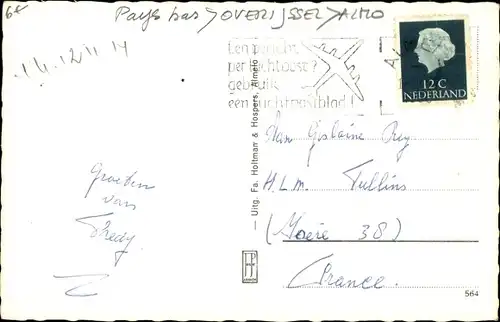 6€
Pays bas > OVERIJSSEL > ALMO
1.4.12 11 14
Een bericht
per luchtpost?
gebruik
een luchtpostblad!
12 C
NEDERLAND
Groeten
van
Thedy.
Uitg. Fa. Holtman & Hospers, Almelo
Gislaine Rey
H.L.M. Tullins
(Isère 38)
France.
564